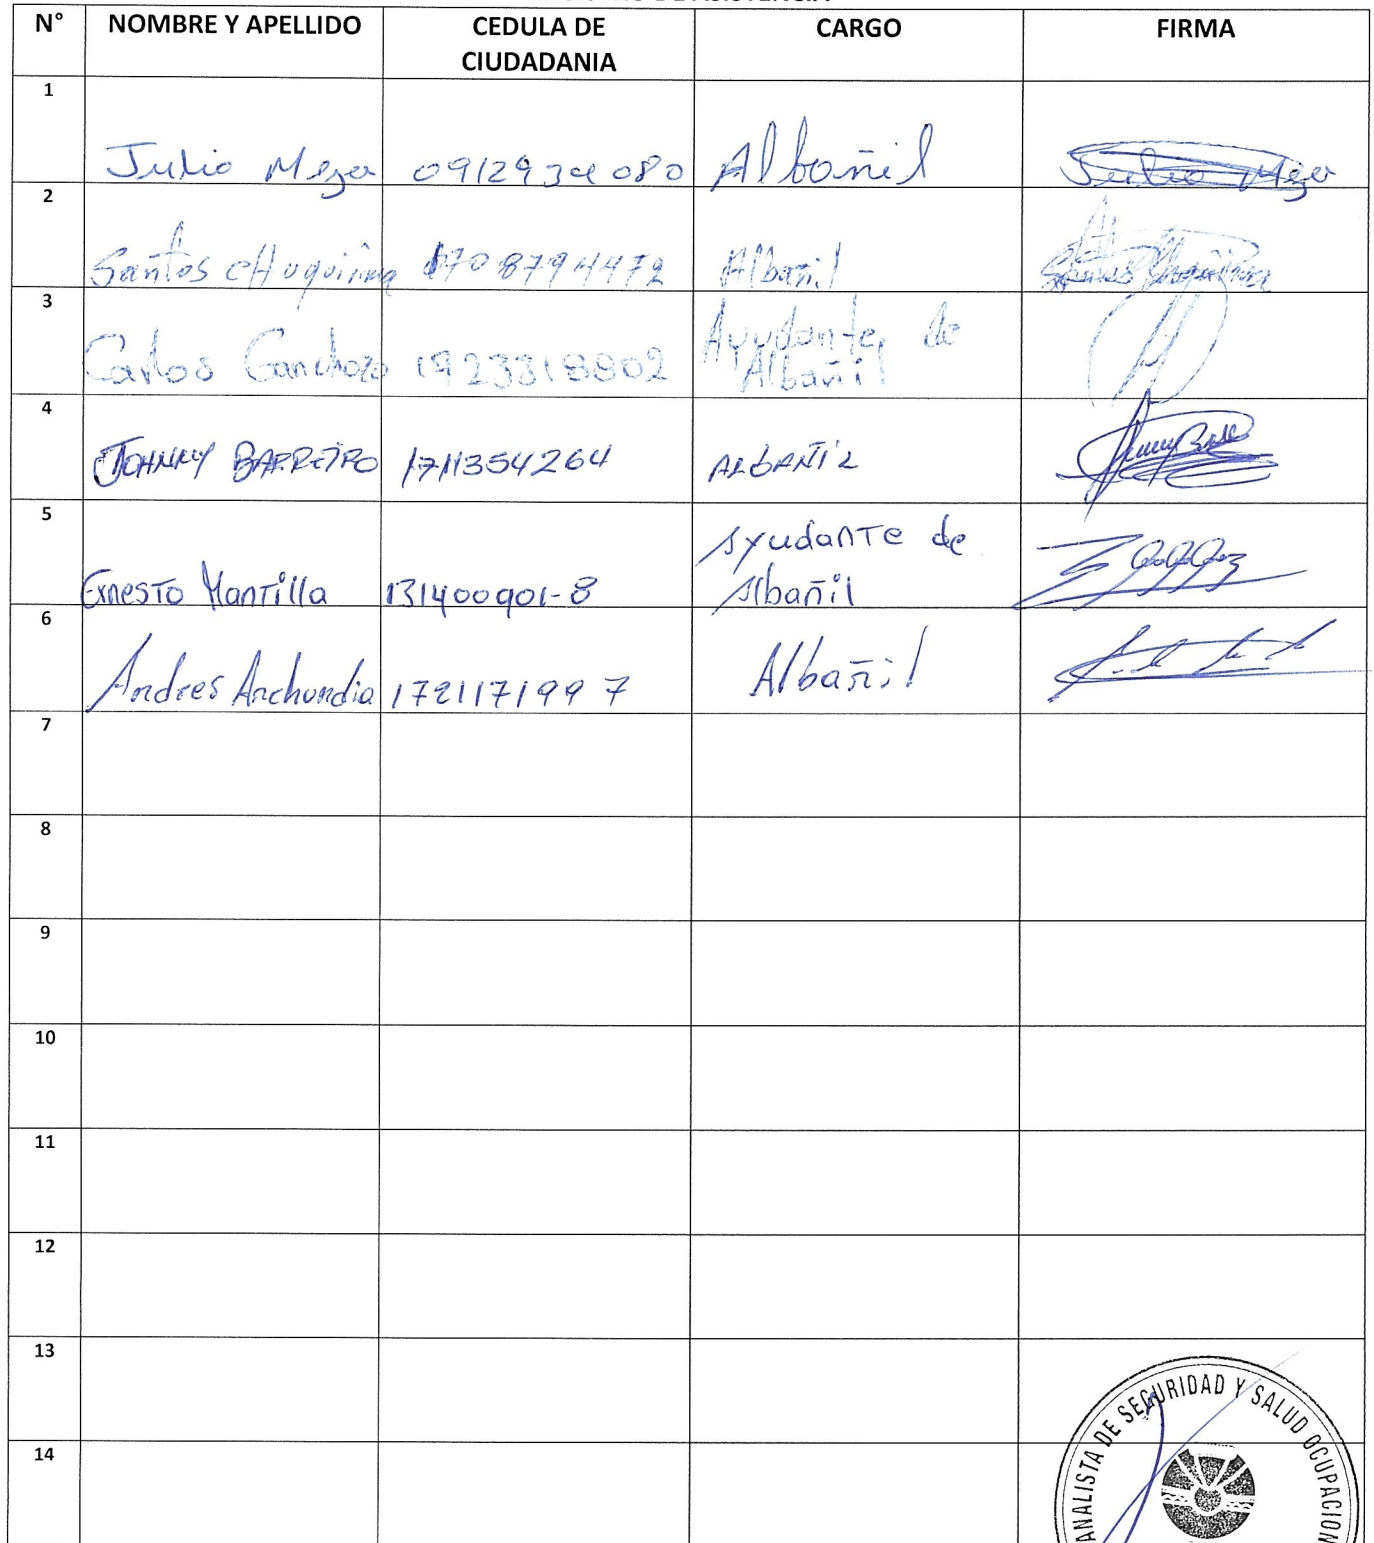 N° NOMBRE Y APELLIDO CEDULA DE CIUDADANIA CARGO FIRMA
1 Julio Meza Albañil Julio Meza
2 Santos 1708794472 Albañil
3 Carlos Canchozo 1723318802 Ayudante de Albañil
4 JOHNNY BARREIRO 1711354264 ALBAÑIL
5 Ernesto Mantilla 131400901-8 Ayudante de Albañil
6 Andres Anchundia 1721171997 Albañil
7
8
9
10
11
12
13
14
ANALISTA DE SEGURIDAD Y SALUD OCUPACION